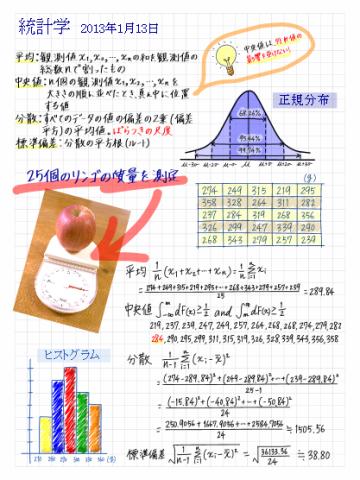 統計学 2013年1月13日
平均:観測値x1,x2,…,xnの和を観測値の
総数nで割ったもの
中央値:n個の観測値x1,x2,…,xnを
大きさの順に並べたとき,真ん中に位置
する値
分散:すべてのデータの値の偏差の2乗(偏差
平方)の平均値。ばらつきの尺度
標準偏差:分散の平方根(ルート)
中央値は、外れ値の
影響を受けない!
正規分布
68.26%
95.44%
99.74%
μ-3σ μ-2σ μ-σ μ μ+σ μ+2σ μ+3σ
25個のリンゴの質量を測定
(g)
274 249 315 219 295
358 328 264 311 282
237 284 319 268 356
326 299 247 339 290
268 343 279 257 239
平均 1/n (x1+x2+…+xn)=1/n Σxi
=274+249+315+219+295+…+268+343+279+257+239/25 =289.84
中央値 ∫dF(x)≥1/2 and ∫dF(x)≥1/2
219,237,239,247,249,257,264,268,268,274,279,282
284,290,295,299,311,315,319,326,328,339,343,356,358
分散 1/n-1 Σ(xi-x̄)²
=(274-289.84)²+(249-289.84)²+…+(239-289.84)²/25-1
=(-15.84)²+(-40.84)²+…+(-50.84)²/24
=250.9056+1667.9056+…+2584.7056/24 ≒1505.56
標準偏差 √1/n-1 Σ(xi-x̄)² =√36133.36/24 ≒38.80
ヒストグラム
(g)